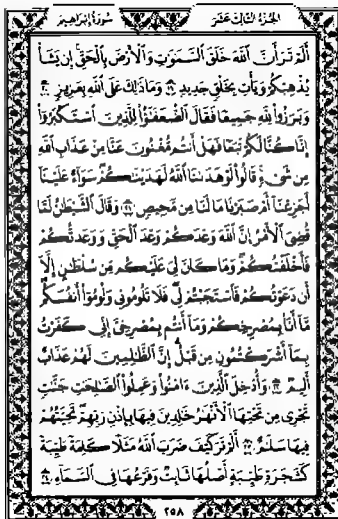 الجزء الثالث عشر
سورة إبراهيم
أَلَمْ تَرَ أَنَّ ٱللَّهَ خَلَقَ ٱلسَّمَٰوَٰتِ وَٱلْأَرْضَ بِٱلْحَقِّ إِن يَشَأْ
يُذْهِبْكُمْ وَيَأْتِ بِخَلْقٍ جَدِيدٍ ۝١٩ وَمَا ذَٰلِكَ عَلَى ٱللَّهِ بِعَزِيزٍ ۝٢٠
وَبَرَزُوا۟ لِلَّهِ جَمِيعًا فَقَالَ ٱلضُّعَفَٰٓؤُا۟ لِلَّذِينَ ٱسْتَكْبَرُوٓا۟
إِنَّا كُنَّا لَكُمْ تَبَعًا فَهَلْ أَنتُم مُّغْنُونَ عَنَّا مِنْ عَذَابِ ٱللَّهِ
مِن شَىْءٍ قَالُوا۟ لَوْ هَدَىٰنَا ٱللَّهُ لَهَدَيْنَٰكُمْ سَوَآءٌ عَلَيْنَآ
أَجَزِعْنَآ أَمْ صَبَرْنَا مَا لَنَا مِن مَّحِيصٍ ۝٢١ وَقَالَ ٱلشَّيْطَٰنُ لَمَّا
قُضِىَ ٱلْأَمْرُ إِنَّ ٱللَّهَ وَعَدَكُمْ وَعْدَ ٱلْحَقِّ وَوَعَدتُّكُمْ
فَأَخْلَفْتُكُمْ وَمَا كَانَ لِىَ عَلَيْكُم مِّن سُلْطَٰنٍ إِلَّآ
أَن دَعَوْتُكُمْ فَٱسْتَجَبْتُمْ لِى فَلَا تَلُومُونِى وَلُومُوٓا۟ أَنفُسَكُم
مَّآ أَنَا۠ بِمُصْرِخِكُمْ وَمَآ أَنتُم بِمُصْرِخِىَّ إِنِّى كَفَرْتُ
بِمَآ أَشْرَكْتُمُونِ مِن قَبْلُ إِنَّ ٱلظَّٰلِمِينَ لَهُمْ عَذَابٌ
أَلِيمٌ ۝٢٢ وَأُدْخِلَ ٱلَّذِينَ ءَامَنُوا۟ وَعَمِلُوا۟ ٱلصَّٰلِحَٰتِ جَنَّٰتٍ
تَجْرِى مِن تَحْتِهَا ٱلْأَنْهَٰرُ خَٰلِدِينَ فِيهَا بِإِذْنِ رَبِّهِمْ تَحِيَّتُهُمْ
فِيهَا سَلَٰمٌ ۝٢٣ أَلَمْ تَرَ كَيْفَ ضَرَبَ ٱللَّهُ مَثَلًا كَلِمَةً طَيِّبَةً
كَشَجَرَةٍ طَيِّبَةٍ أَصْلُهَا ثَابِتٌ وَفَرْعُهَا فِى ٱلسَّمَآءِ ۝٢٤
٢٥٨